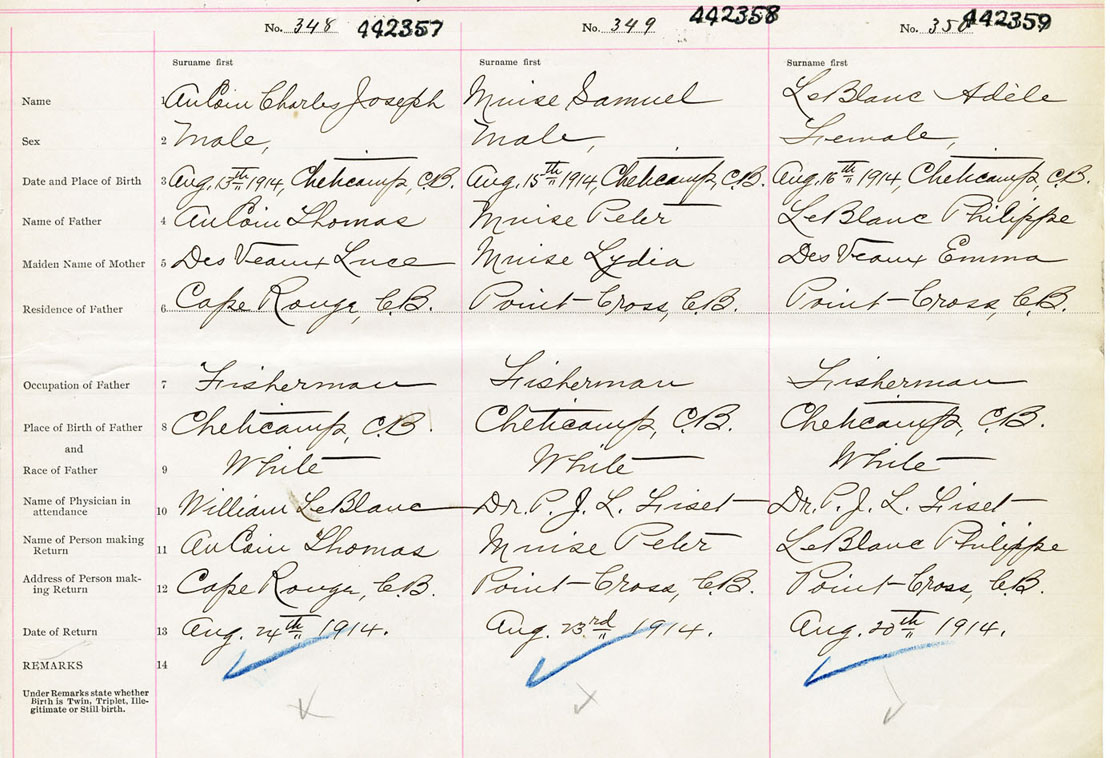 No. 348 442357 No. 349 442358 No. 350 442359
Surname first Surname first Surname first
Name 1 AuCoin Charles Joseph Muise Samuel LeBlanc Adèle
Sex 2 Male, Male, Female,
Date and Place of Birth 3 Aug. 13th 1914, Cheticamp, C.B. Aug. 15th 1914, Cheticamp, C.B. Aug. 16th 1914, Cheticamp, C.B.
Name of Father 4 AuCoin Thomas Muise Peter LeBlanc Philippe
Maiden Name of Mother 5 Des Veaux Luce Muise Lydia Des Veaux Emma
Residence of Father 6 Cape Rouge, C.B. Point-Cross, C.B. Point-Cross, C.B.
Occupation of Father 7 Fisherman Fisherman Fisherman
Place of Birth of Father 8 Cheticamp, C.B. Cheticamp, C.B. Cheticamp, C.B.
and
Race of Father 9 White White White
Name of Physician in
attendance 10 William LeBlanc Dr. P. J. L. Fiset Dr. P. J. L. Fiset
Name of Person making
Return 11 AuCoin Thomas Muise Peter LeBlanc Philippe
Address of Person mak-
ing Return 12 Cape Rouge, C.B. Point-Cross, C.B. Point-Cross, C.B.
Date of Return 13 Aug. 24th 1914. Aug. 23rd 1914. Aug. 20th 1914.
REMARKS 14
Under Remarks state whether
Birth is Twin, Triplet, Ille-
gitimate or Still birth.